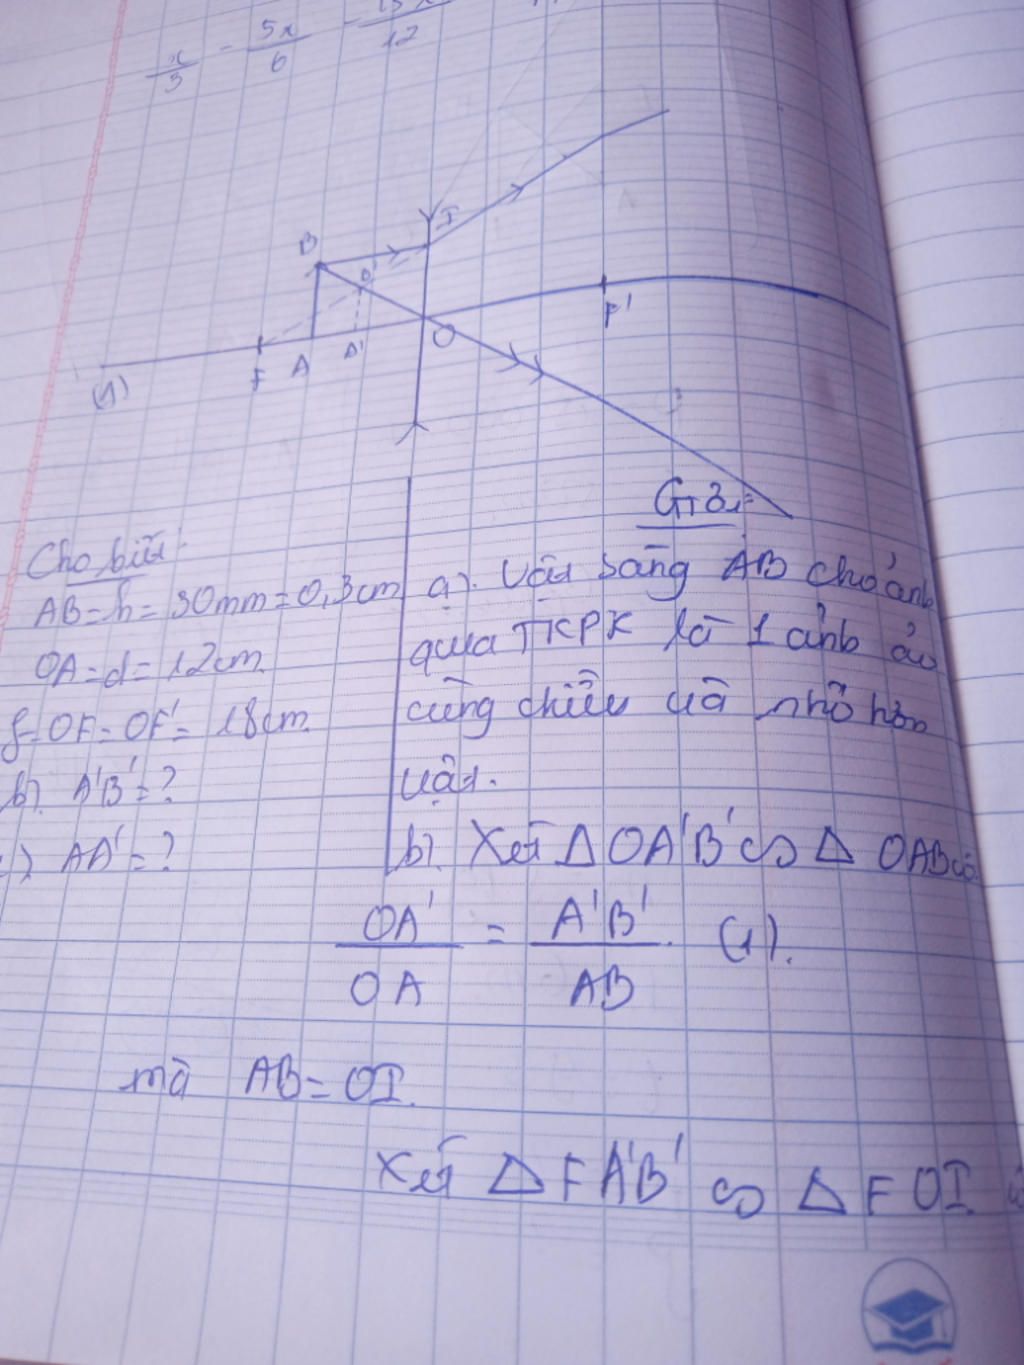 x/3 - 5x/6 - 12
B I
B'
F A A' O F'
(Δ)
Giải
Cho biết:
AB = h = 30mm = 0,3cm
OA = d = 12cm
f = OF = OF' = 18cm
b). A'B' = ?
c). AA' = ?
a). Vật sáng AB cho ảnh
qua TKPK là 1 ảnh ảo
cùng chiều và nhỏ hơn
vật.
b). Xét Δ OA'B' ∽ Δ OAB có
OA'/OA = A'B'/AB (1).
mà AB = OI.
Xét Δ FA'B' ∽ Δ FOI